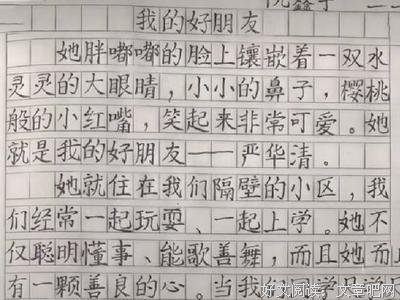 鑫宇
我的好朋友
她胖嘟嘟的脸上镶嵌着一双水
灵灵的大眼睛，小小的鼻子，樱桃
般的小红嘴，笑起来非常可爱。她
就是我的好朋友——严华清。
她就住在我们隔壁的小区，我
们经常一起玩耍、一起上学。她不
仅聪明懂事、能歌善舞，而且她而且
有一颗善良的心。当我
好文阅读：文章吧网